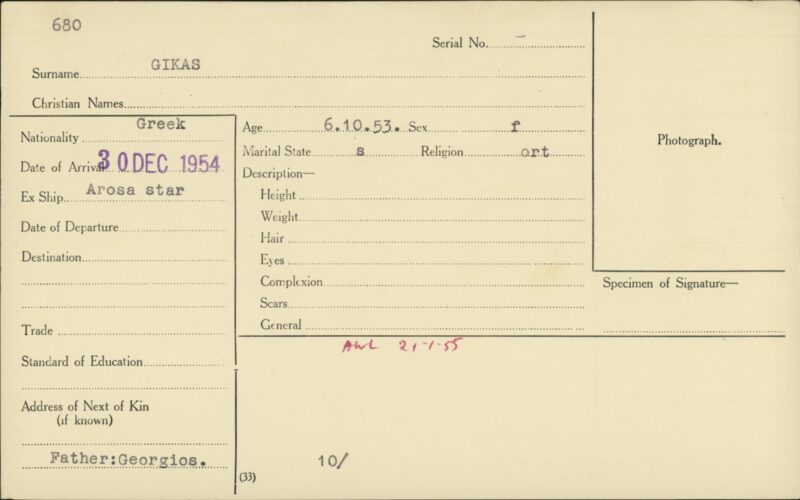 680
Serial No. -
Surname GIKAS
Christian Names
Photograph.
Nationality Greek
Date of Arrival 30 DEC 1954
Ex Ship Arosa star
Date of Departure
Destination
Trade
Standard of Education
Address of Next of Kin
(if known)
Father:Georgios.
Age 6.10.53. Sex f
Marital State s Religion ort
Description—
Height
Weight
Hair
Eyes
Complexion
Scars
General
Specimen of Signature—
AWL 21-1-55
10/
(33)